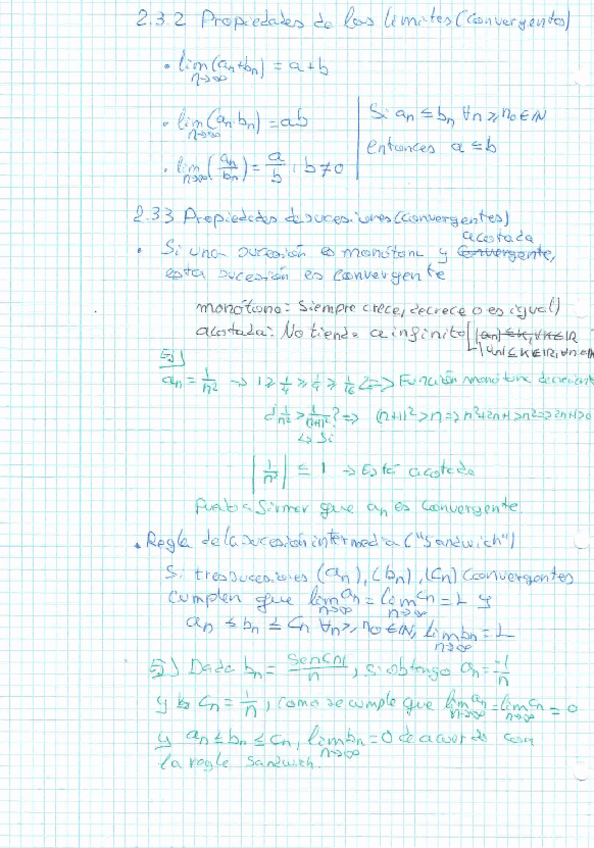 2.3.2 Propiedades de los límites (convergentes)
• lim n→∞ (an+bn) = a+b
• lim n→∞ (an·bn) = ab
Si an ≤ bn ∀n ≥ n0 ∈ ℕ
entonces a ≤ b
• lim n→∞ (an/bn) = a/b ; b≠0
2.3.3 Propiedades de sucesiones (convergentes)
acotada
• Si una sucesión es monótona y convergente,
esta sucesión es convergente
monótona: Siempre crece, decrece o es igual)
acotada: No tiende a infinito
|an| ≤ K ∈ ℝ, ∀n ∈ ℕ
Ej)
an = 1/n² → 1 ≥ 1/4 ≥ 1/16 => Función monótona decreciente
¿ 1/n² > 1/(n+1)² ? => (n+1)² > n => n²+2n+1 > n² => 2n+1 > 0
↳ Si
|1/n²| ≤ 1 → Está acotada
Puedo afirmar que an es convergente.
• Regla de la sucesión intermedia ("Sandwich")
Si tres sucesiones (an), (bn), (cn) convergentes
cumplen que lim n→∞ an = lim n→∞ cn = L y
an ≤ bn ≤ cn ∀n ≥ n0 ∈ ℕ, lim n→∞ bn = L
Ej) Dada bn = sen(n)/n, si obtengo an = -1/n
y cn = 1/n, como se cumple que lim n→∞ an = lim n→∞ cn = 0
y an ≤ bn ≤ cn, lim n→∞ bn = 0 de acuerdo con
la regla sandwich.